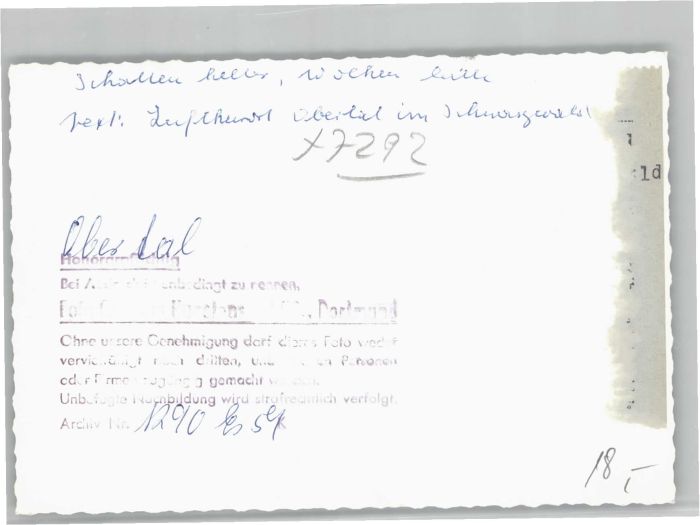 Schatten heller, Wolken
Text: Luftkurort Obertal im Schwarzwald
x7292
ld
Obertal
Honorarpflichtig
Bei Abdruck unbedingt zu nennen.
Foto Dortmund
Ohne unsere Genehmigung darf dieses Foto weder
vervielfältigt noch dritten, und Personen
oder Firmen zugängig gemacht werden.
Unbefugte Nachbildung wird strafrechtlich verfolgt.
Archiv Nr. 1290
18,-